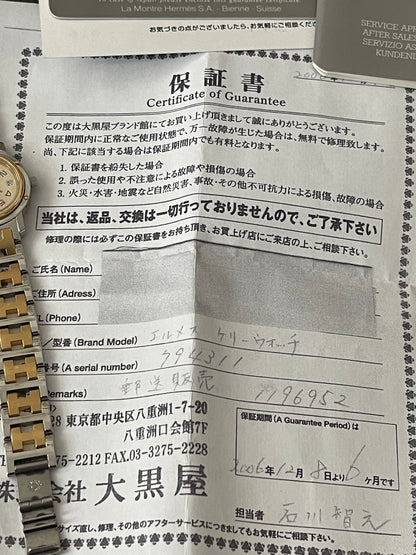 La Montre Hermès S.A. - Bienne - Suisse
SERVICE APR
AFTER SALES
SERVIZIO AS
KUNDENDI
保証書
Certificate of Guarantee
この度は大黒屋ブランド館にてお買上げ頂きまして誠にありがとうございます。
保証期間内に正常なご使用状態で、万一故障が生じた場合は、無料で修理致します。
尚、下記に該当する場合は保証期間内でも有料となります。
1. 保証書を紛失した場合
2. 誤った使用や不注意による故障や損傷の場合
3. 火災・水害・地震など自然災害、事故・その他不可抗力による損傷、故障の場合
当社は、返品、交換は一切行っておりませんので、ご了承下さい
修理の際には必ずこの保証書をお持ち頂き、お買上げ店にご来店の上、ご相談下さい。
ご氏名(Name)
ご住所(Adress)
(Phone)
/型番(Brand Model) エルメス ケリーウォッチ
番号(A serial number) 794311
emarks) 郵送販売 7196952
28 東京都中央区八重洲1-7-20
八重洲口会館7F
75-2212 FAX.03-3275-2228
株式会社 大黒屋
保証期間(A Guarantee Period)は
2006年12月8日より6ヶ月です
担当者 石川智之
サイズ直し、修理、その他のアフターサービスにつきましてもお気軽にご相談ください。